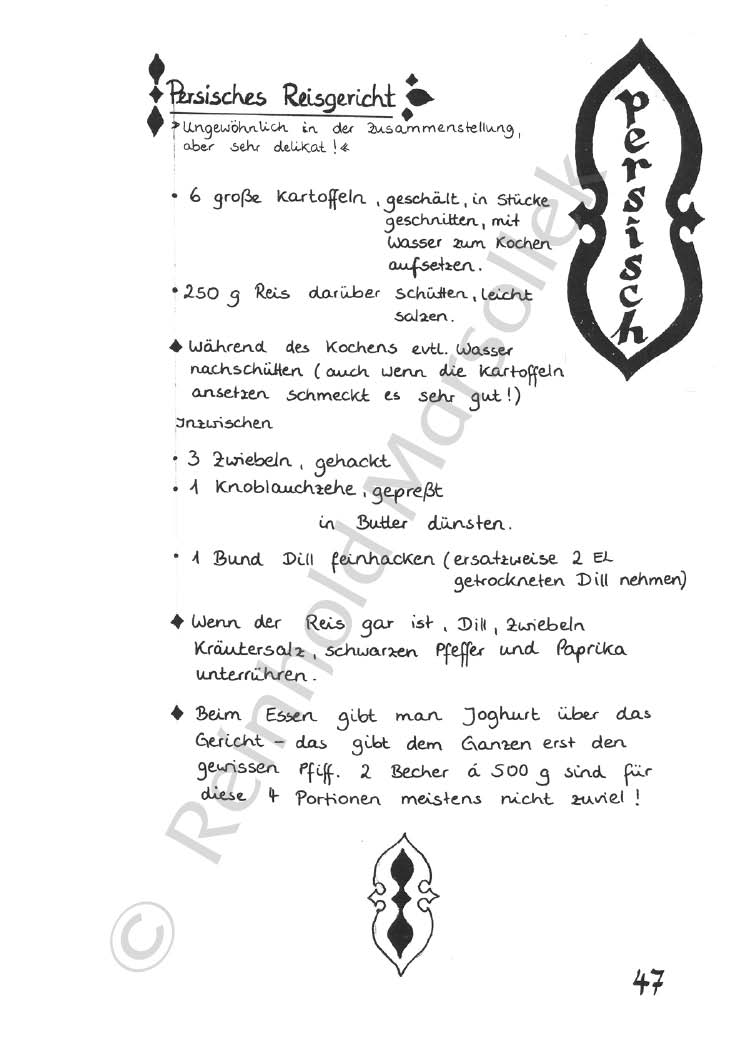 Persisches Reisgericht
>Ungewöhnlich in der Zusammenstellung,
aber sehr delikat!<
persisch
• 6 große Kartoffeln, geschält, in Stücke
geschnitten, mit
Wasser zum Kochen
aufsetzen.
• 250 g Reis darüber schütten, leicht
salzen.
♦ Während des Kochens evtl. Wasser
nachschütten (auch wenn die Kartoffeln
ansetzen schmeckt es sehr gut!)
Inzwischen
• 3 Zwiebeln, gehackt
• 1 Knoblauchzehe, gepreßt
in Butter dünsten.
• 1 Bund Dill feinhacken (ersatzweise 2 EL
getrockneten Dill nehmen)
♦ Wenn der Reis gar ist, Dill, Zwiebeln
Kräutersalz, schwarzen Pfeffer und Paprika
unterrühren.
♦ Beim Essen gibt man Joghurt über das
Gericht – das gibt dem Ganzen erst den
gewissen Pfiff. 2 Becher á 500 g sind für
diese 4 Portionen meistens nicht zuviel!
© Reinhold Marsollek
47